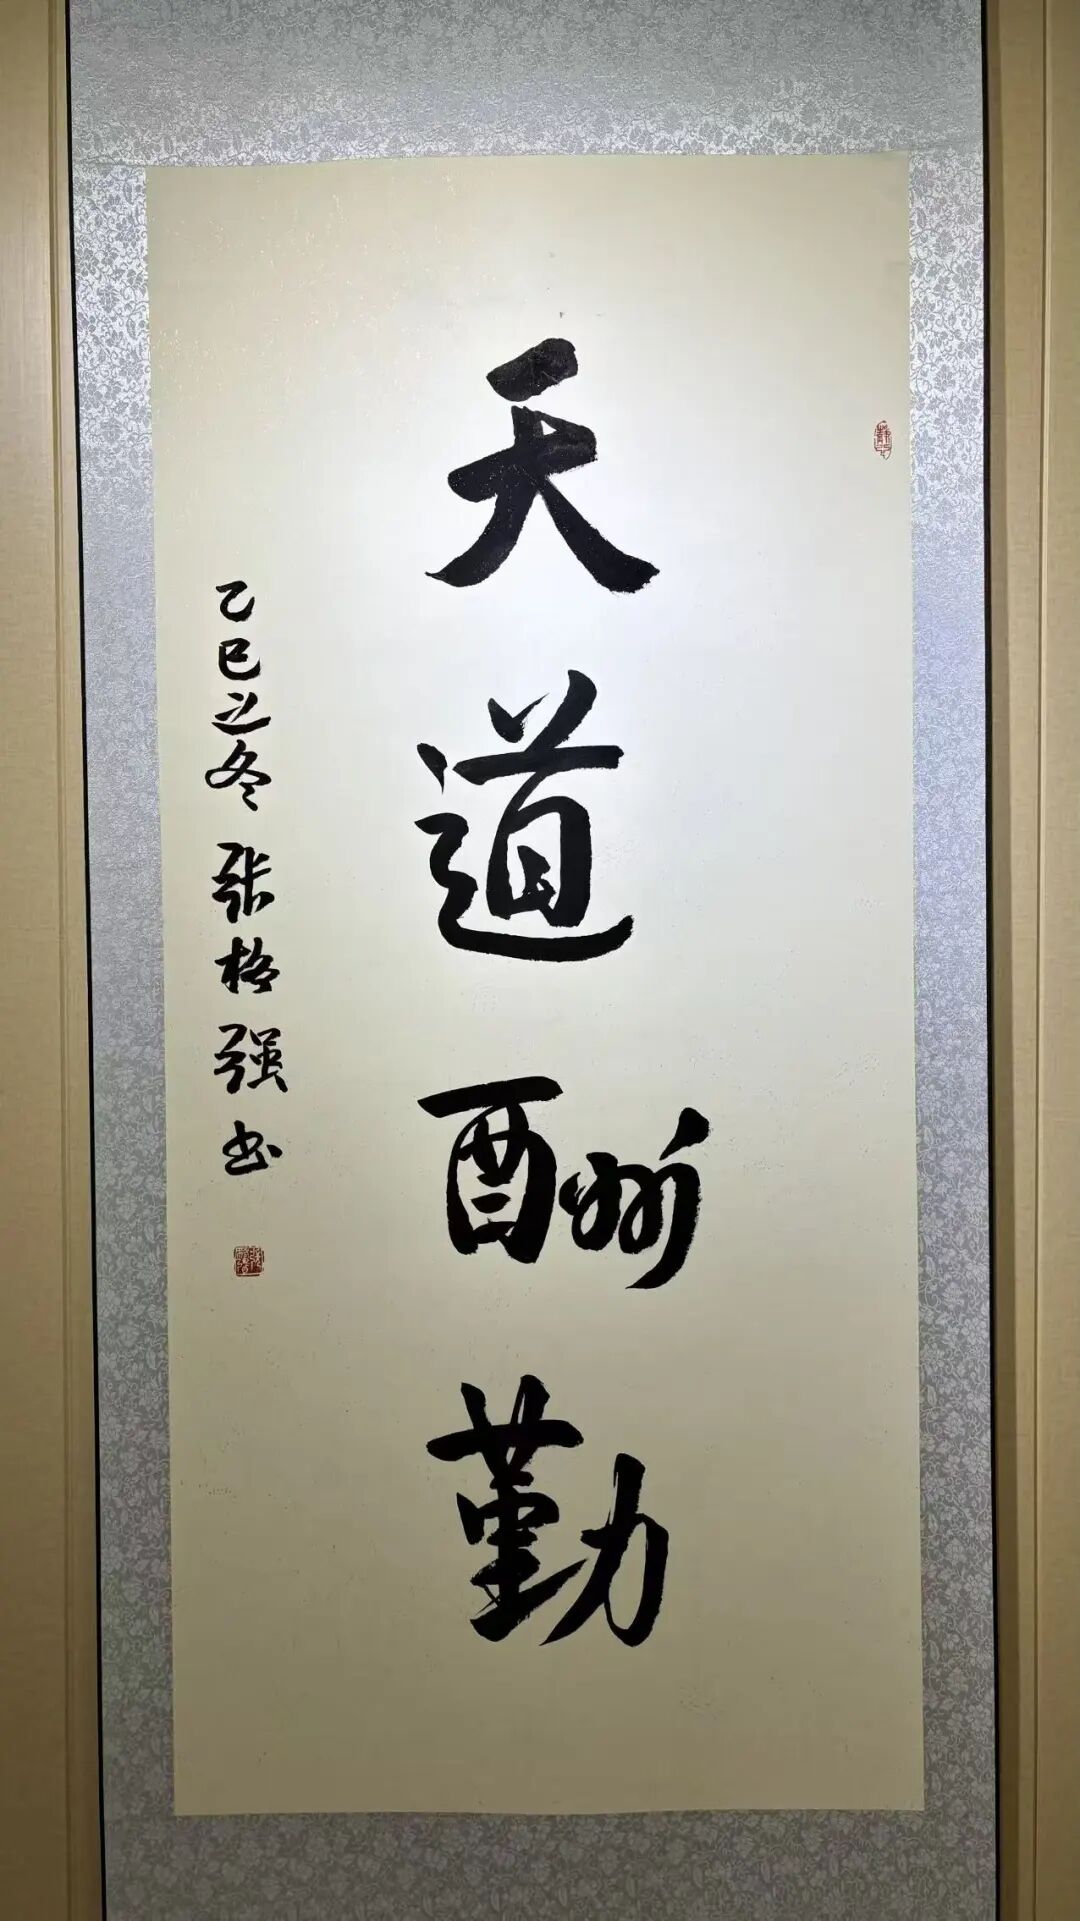 天道酬勤
乙巳之冬 张格强书